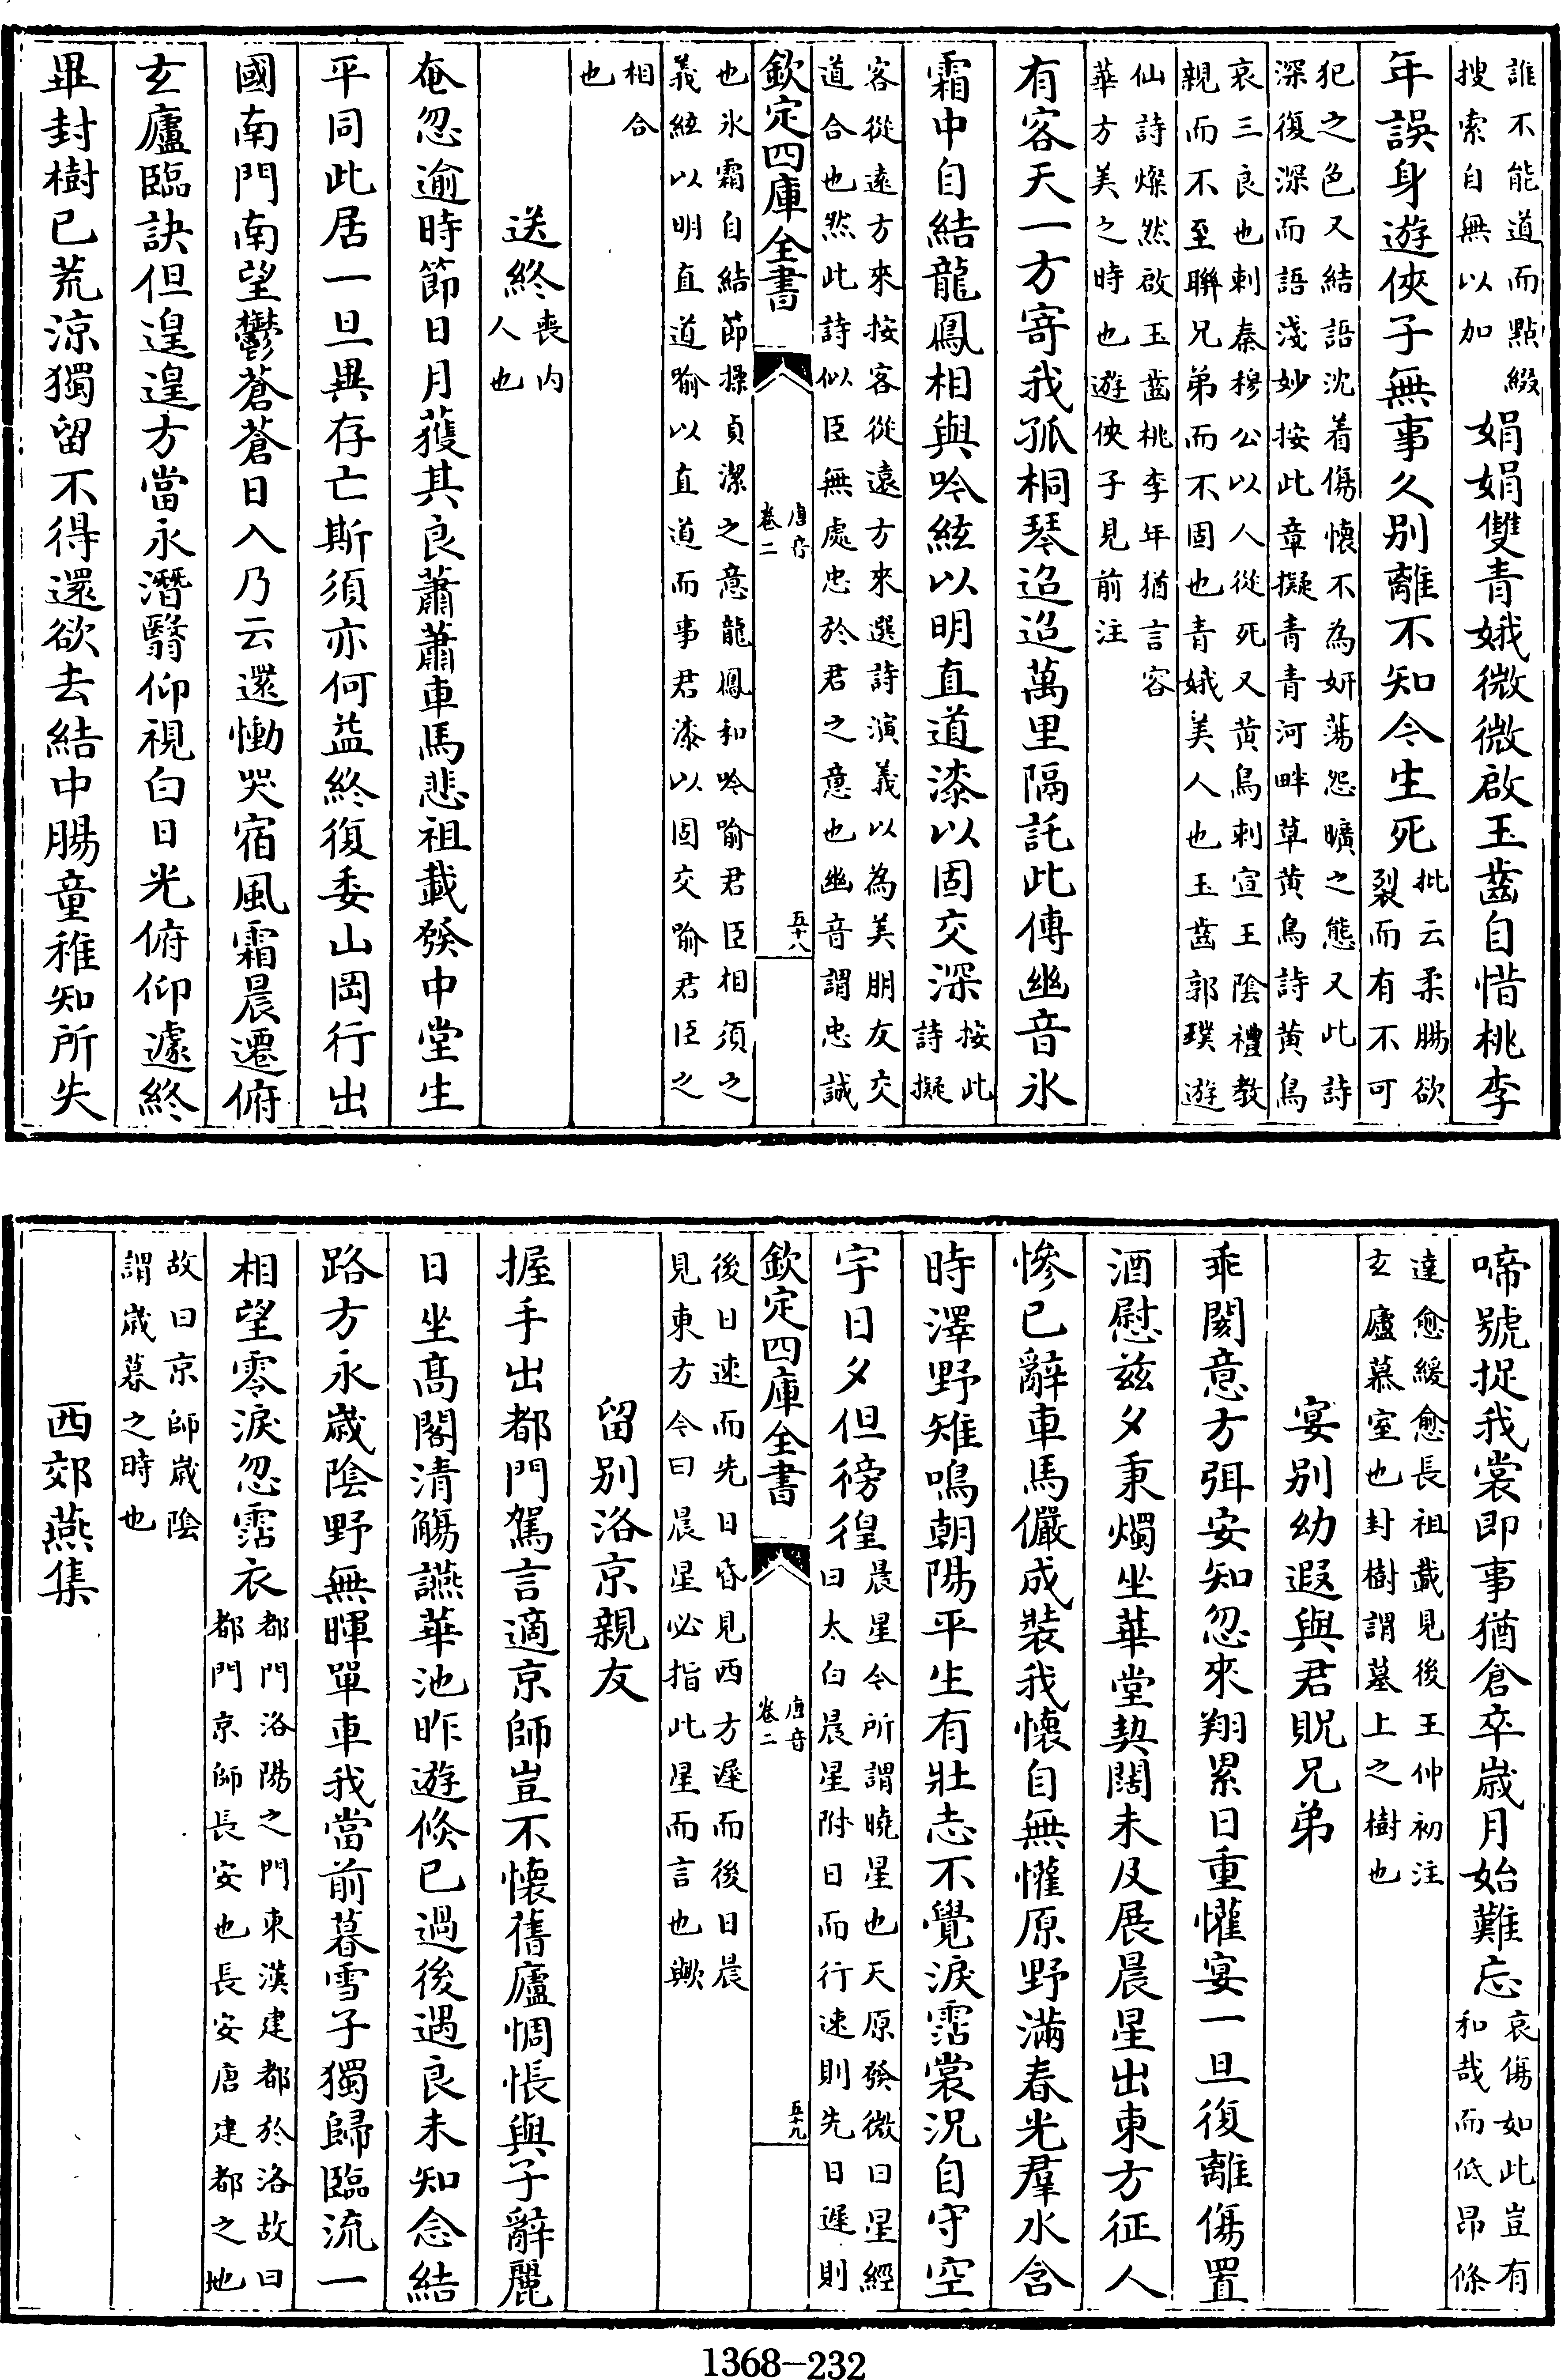 誰不能道而點綴搜索自無以加娟娟雙青娥微微啟玉齒自惜桃李
年誤身遊俠子無事久別離不知今生死批云柔腸欲裂而有不可
犯之色又結語沈着傷懷不為妍蕩怨曠之態又此詩深復深而語淺妙按此章擬青青河畔草黃鳥詩黃鳥
哀三良也刺秦穆公以人從死又黃鳥刺宣王陰禮教親而不至聯兄弟而不固也青娥美人也玉齒郭璞遊
仙詩燦然啟玉齒桃李年猶言容華方美之時也遊俠子見前注
有客天一方寄我孤桐琴迢迢萬里隔託此傳幽音氷
霜中自結龍鳳相與吟絃以明直道漆以固交深按此詩擬
客從遠方來按客從遠方來選詩演義以為美朋友交道合也然此詩似臣無處忠於君之意也幽音謂忠誠
欽定四庫全書
唐音
卷二
五十八
也氷霜自結節操貞潔之意龍鳳和吟喻君臣相須之義絃以明直道喻以直道而事君漆以固交喻君臣之
相合也
送終喪內人也
奄忽逾時節日月獲其良蕭蕭車馬悲祖載發中堂生
平同此居一旦異存亡斯須亦何益終復委山岡行出
國南門南望鬱蒼蒼日入乃云還慟哭宿風霜晨遷俯
玄廬臨訣但遑遑方當永潛翳仰視白日光俯仰遽終
畢封樹已荒涼獨留不得還欲去結中腸童稚知所失
啼號捉我裳即事猶倉卒歲月始難忘哀傷如此豈有和哉而低昂條
達愈緩愈長祖載見後王仲初注玄廬慕室也封樹謂墓上之樹也
宴別幼遐與君貺兄弟
乖闋意方弭安知忽來翔累日重懽宴一旦復離傷置
酒慰兹夕秉燭坐華堂契闊未及展晨星出東方征人
慘已辭車馬儼成裝我懷自無懽原野滿春光羣水含
時澤野雉鳴朝陽平生有壯志不覺淚霑裳況自守空
宇日夕但徬徨晨星今所謂曉星也天原發微曰星經曰太白晨星附日而行速則先日遲則
欽定四庫全書
唐音
卷二
五十九
後日速而先日昏見西方遲而後日晨見東方今曰晨星必指此星而言也歟
留別洛京親友
握手出都門駕言適京師豈不懷舊廬惆悵與子辭麗
日坐高閣清觴讌華池昨遊倏已過後遇良未知念結
路方永歲陰野無暉單車我當前暮雪子獨歸臨流一
相望零淚忽霑衣都門洛陽之門東漢建都於洛故曰都門京師長安也長安唐建都之地
故曰京師歲陰謂歲暮之時也
西郊燕集
1368-232